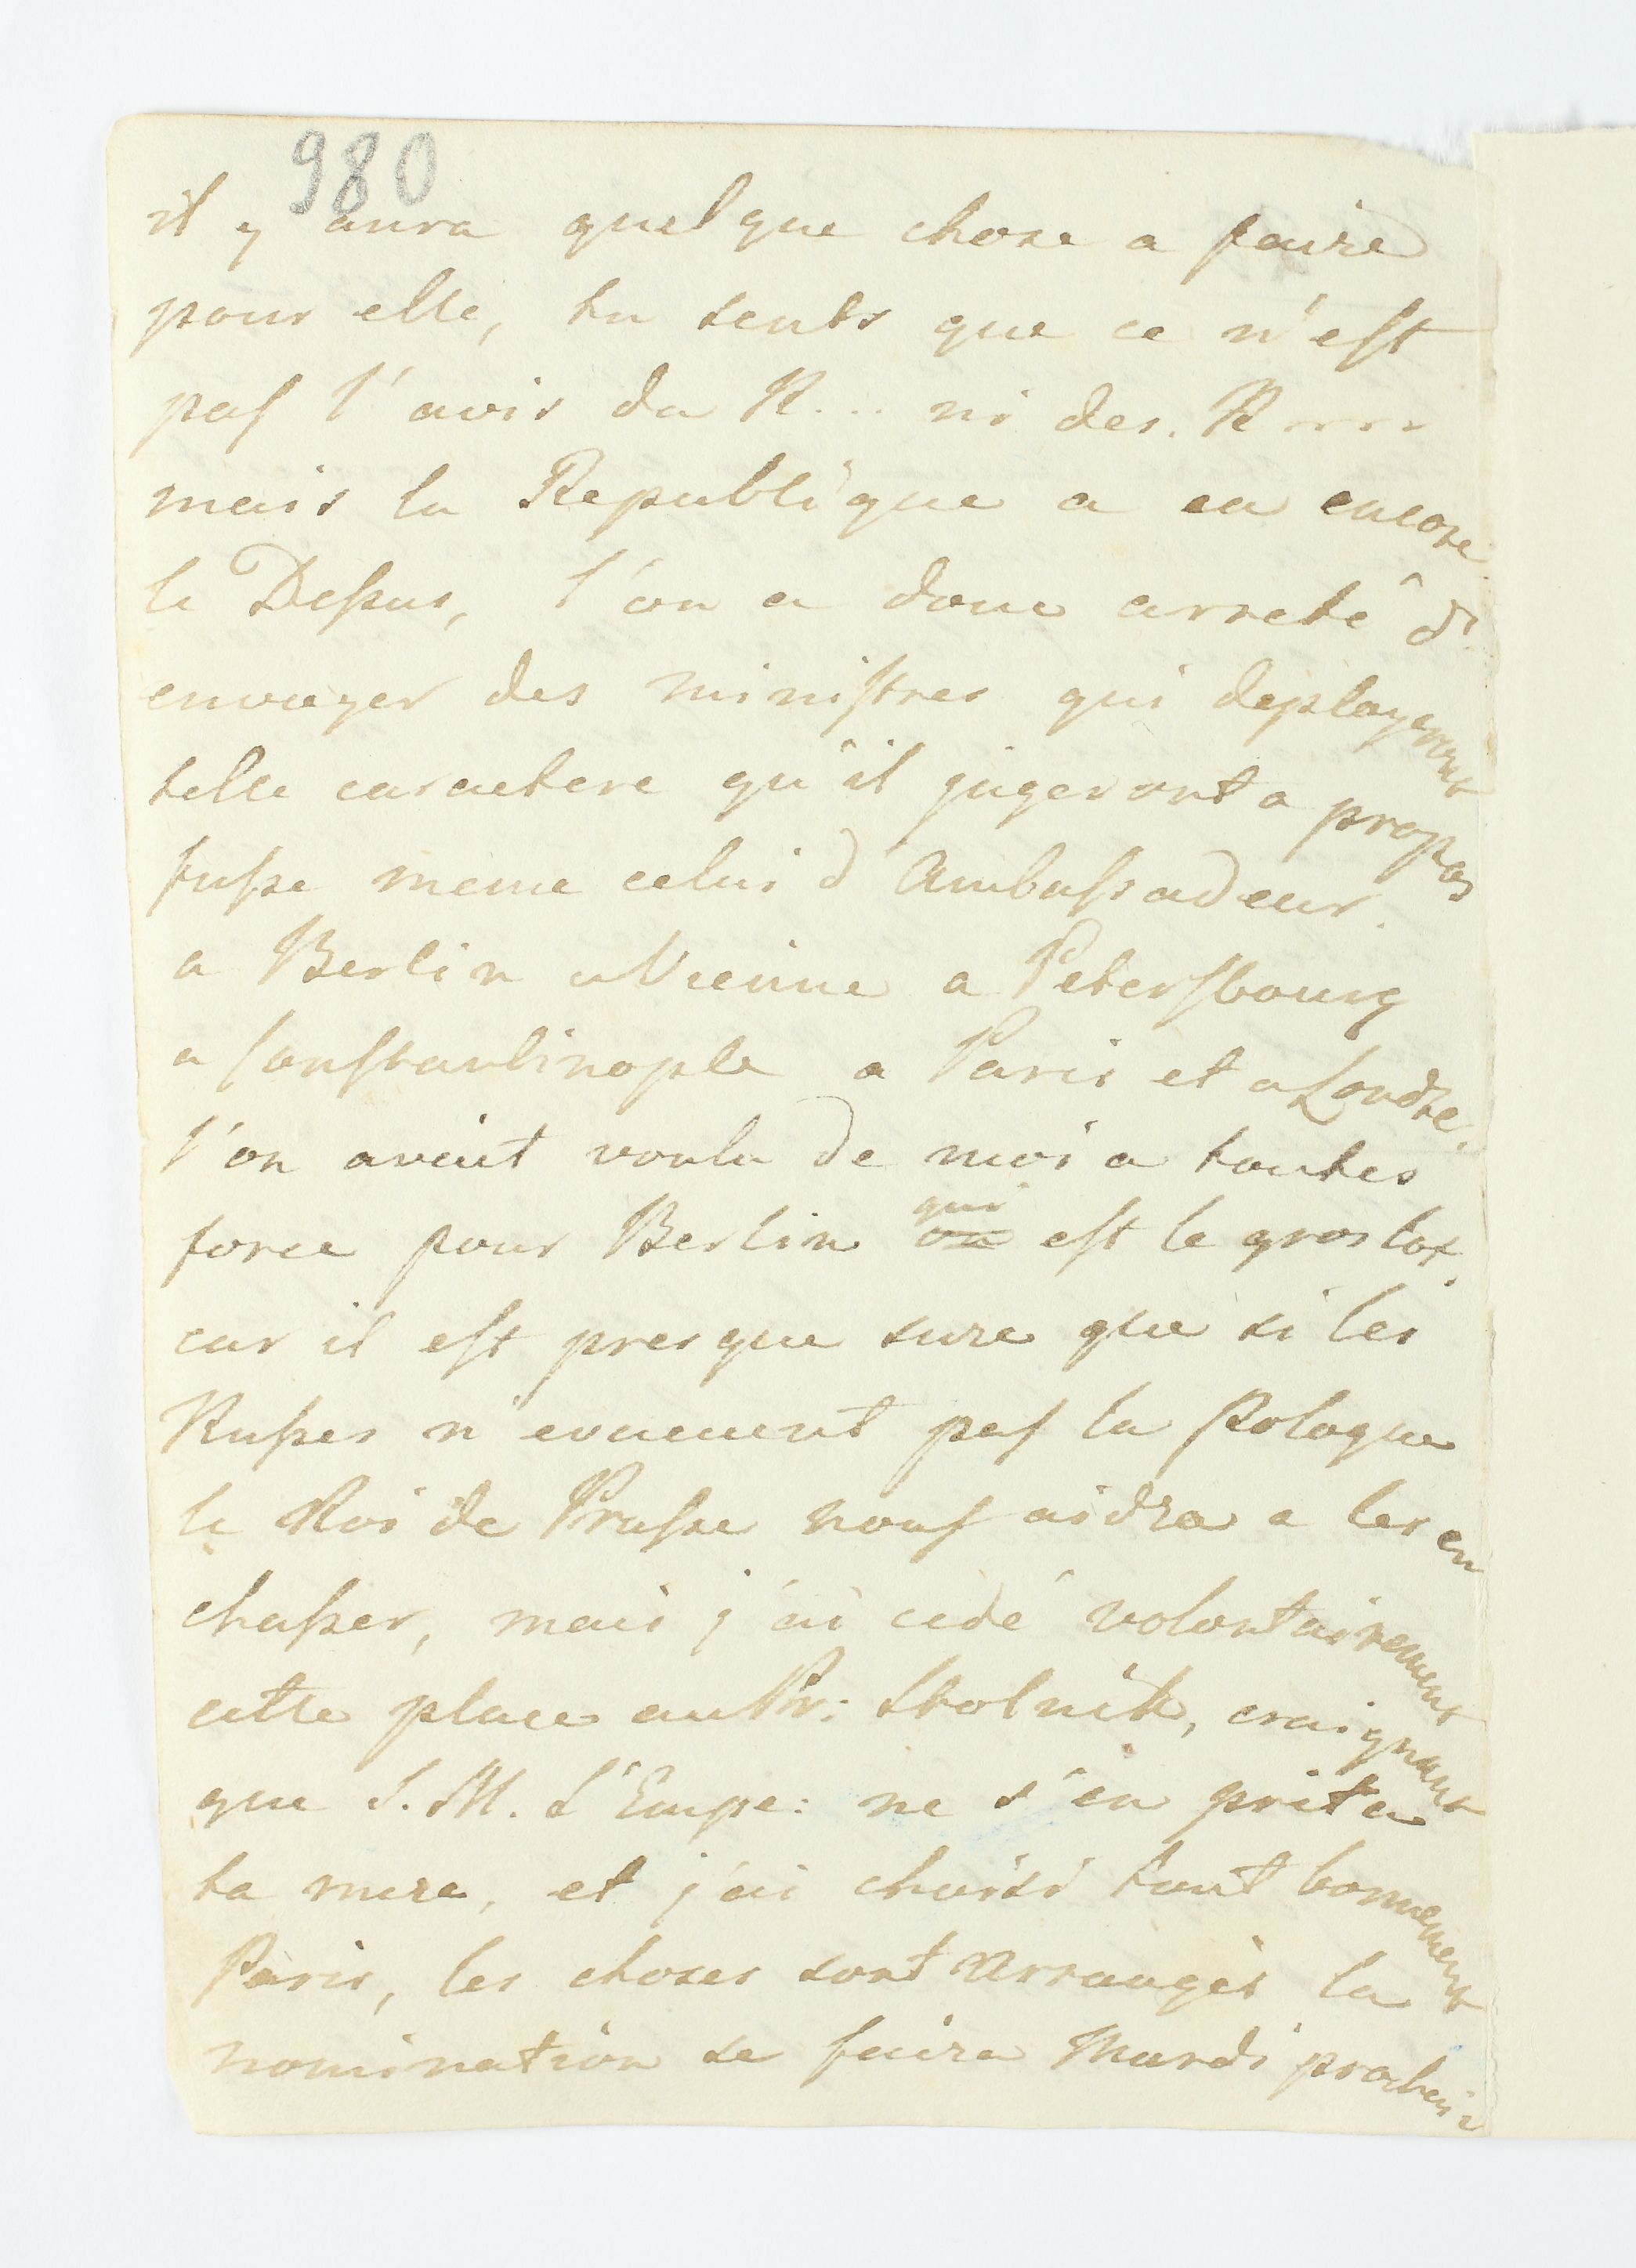 980
il y aura quelque chose a faire
pour elle, tu sents que ce n'est
pas l'avis du R... ni des. R.....
mais la Republique a eu encore
le Dessus, l'on a donc arreté d'
envoyer des ministres qui deployeront
telle caractere qu'il jugeront a propos
fusse meme celui d'Ambassadeur.
a Berlin a Vienne a Petersbourg
a Constantinople a Paris et a Londre.
l'on avait voulu de moi a toutes
force pour Berlin ou qui est le gros lot.
car il est presque sure que si les
Russes n'evacuent pas la Pologne
le Roi de Prusse nous aidra a les en
chasser, mais j'ai cédé volontairement
cette place au Pr: Stolnik, craignant
que S. M. L'Empe: ne s'en prit a
ta mere, et j'ai choisi tout bonnement
Paris, les choses sont arrangés la
nomination se faira Mardi prochain